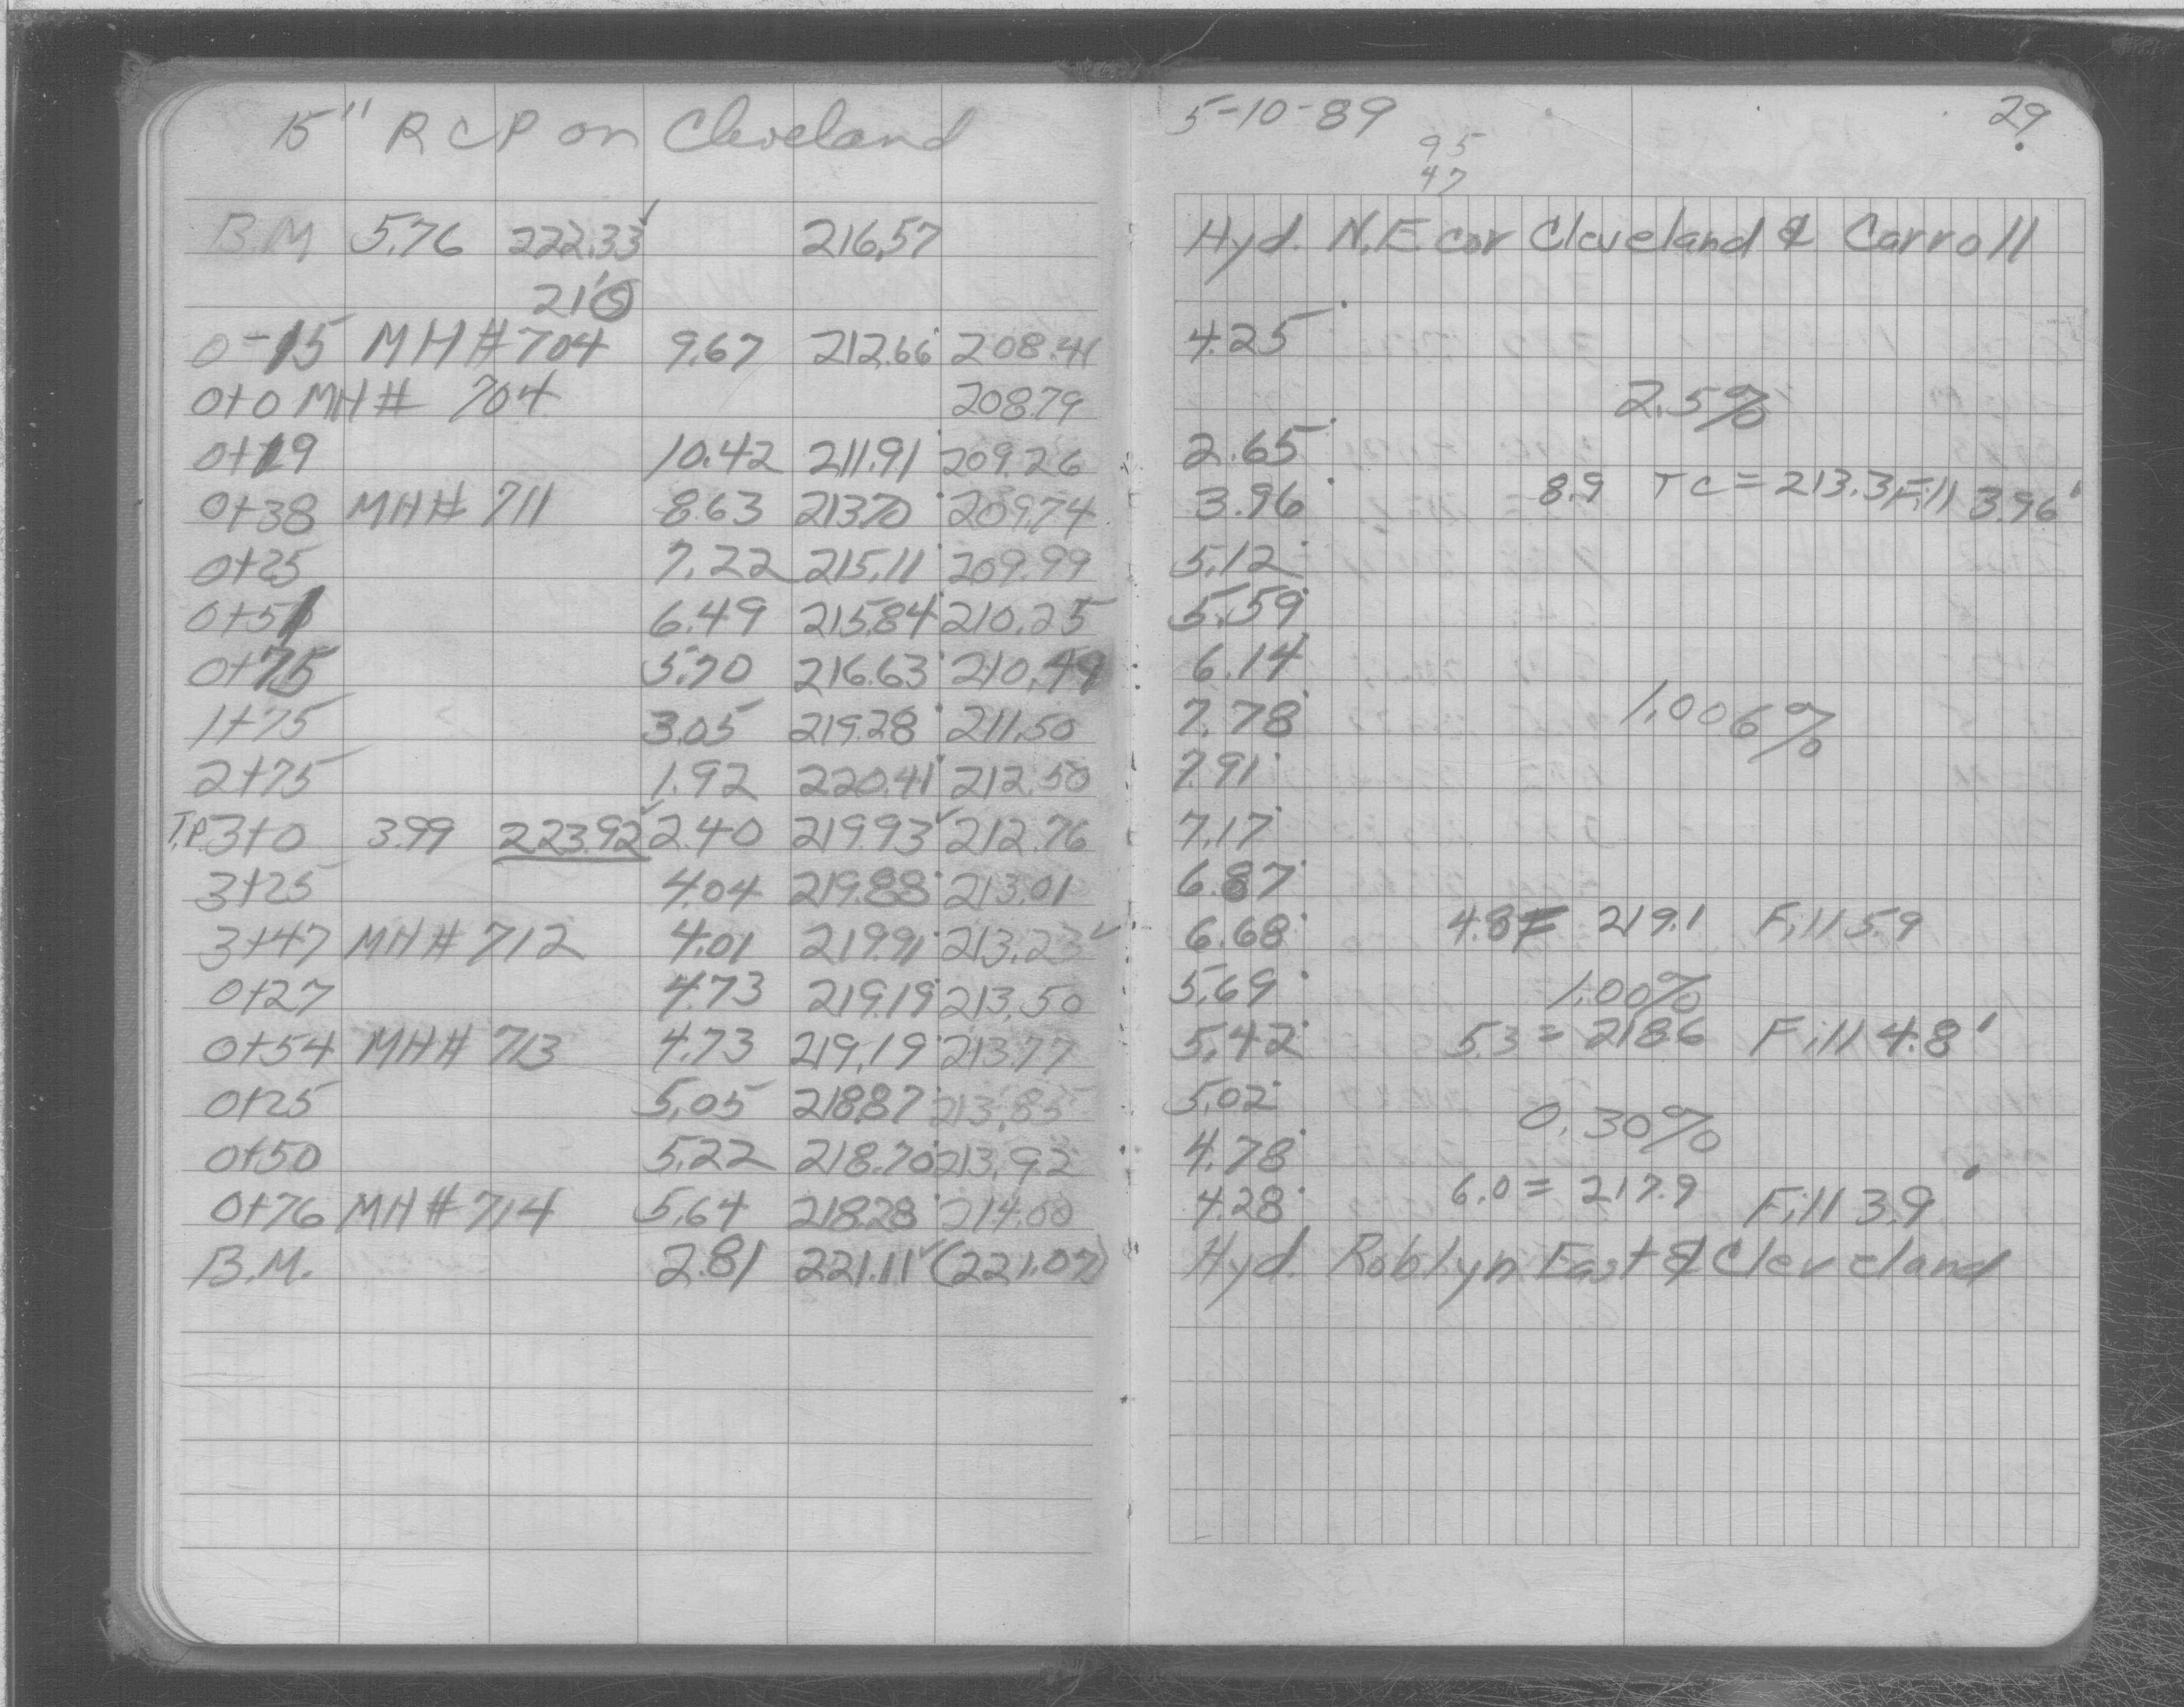 15" RCP on Cleveland
B.M 5.76 222.33✓ 216.57
215
0-15 MH# 704 9.67 212.66 208.41
0+0 MH# 704 208.79
0+19 10.42 211.91 209.26
0+38 MH# 711 8.63 213.70 209.74
0+25 7.22 215.11 209.99
0+51 6.49 215.84 210.25
0+75 5.70 216.63 210.49
1+75 3.05 219.28 211.50
2+75 1.92 220.41 212.50
T.P. 3+0 3.99 223.92✓ 2.40 219.93✓ 212.76
3+25 4.04 219.88 213.01
3+47 MH# 712 4.01 219.91 213.23✓
0+27 4.73 219.19 213.50
0+54 MH# 713 4.73 219.19 213.77
0+25 5.05 218.87 213.85
0+50 5.22 218.70 213.92
0+76 MH# 714 5.64 218.28 214.00
B.M. 2.81 221.11✓ (221.07)
5-10-89 29
95
47
Hyd. N.E cor Cleveland & Carroll
4.25
2.5%
2.65
3.96 8.9 TC = 213.3 Fill 3.96'
5.12
5.59
6.14
7.78 1.006%
7.91
7.17
6.87
6.68 4.8 = 219.1 Fill 5.9
5.69 1.00%
5.42 5.3 = 218.6 Fill 4.8'
5.02 0.30%
4.78
4.28 6.0 = 217.9 Fill 3.9'
Hyd. Roblyn East & Cleveland